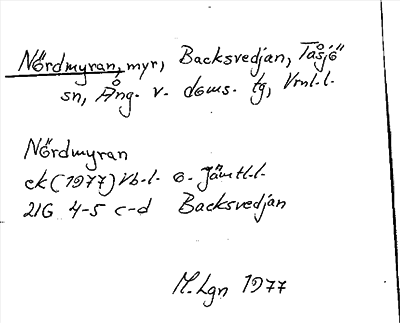 Nördmyran, myr, Backsvedjan, Tåsjö
sn, Ång. v. doms. tg, Vrnl.l.
Nördmyran
ek (1977) Vb.l. o. Jämtl.l.
21G 4-5 c-d Backsvedjan
M.Lgn 1977